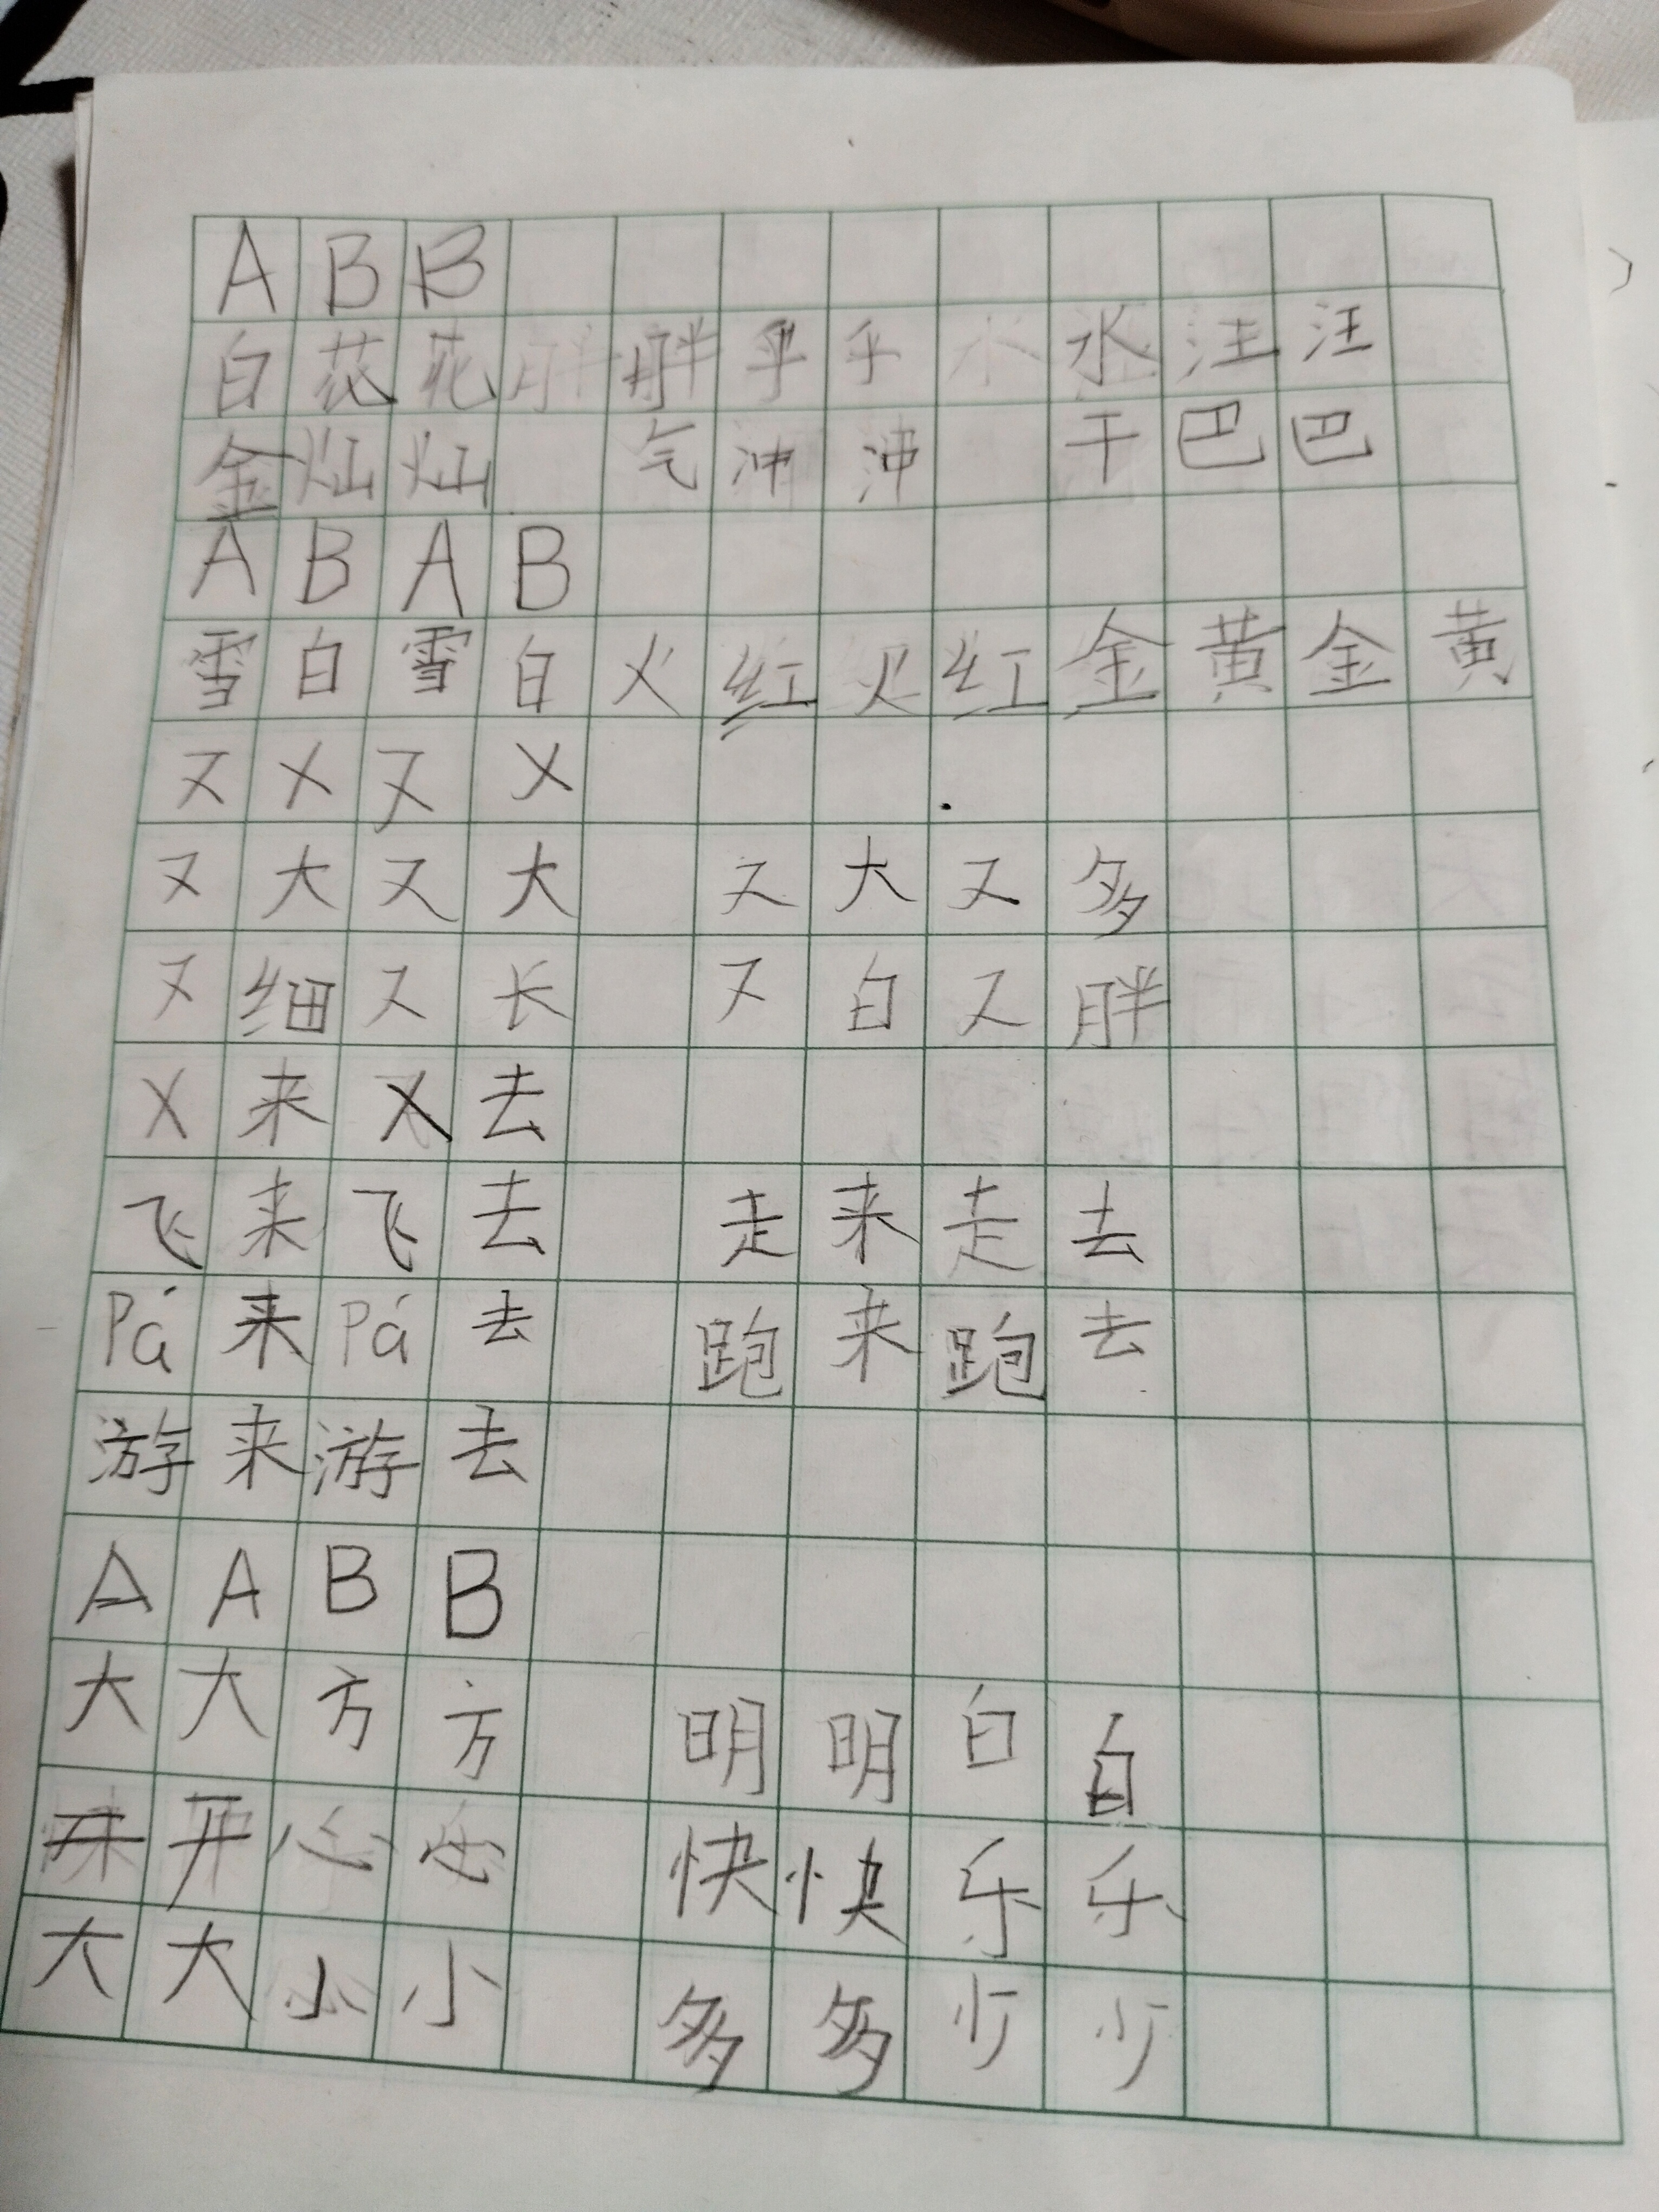 A B B
白 花 花 胖 乎 乎 水 汪 汪
金 灿 灿 气 冲 冲 干 巴 巴
A B A B
雪 白 雪 白 火 红 火 红 金 黄 金 黄
又 X 又 X
又 大 又 大 又 大 又 多
又 细 又 长 又 白 又 胖
X 来 X 去
飞 来 飞 去 走 来 走 去
Pá 来 Pá 去 跑 来 跑 去
游 来 游 去
A A B B
大 大 方 方 明 明 白 白
开 开 心 心 快 快 乐 乐
大 大 小 小 多 多 少 少